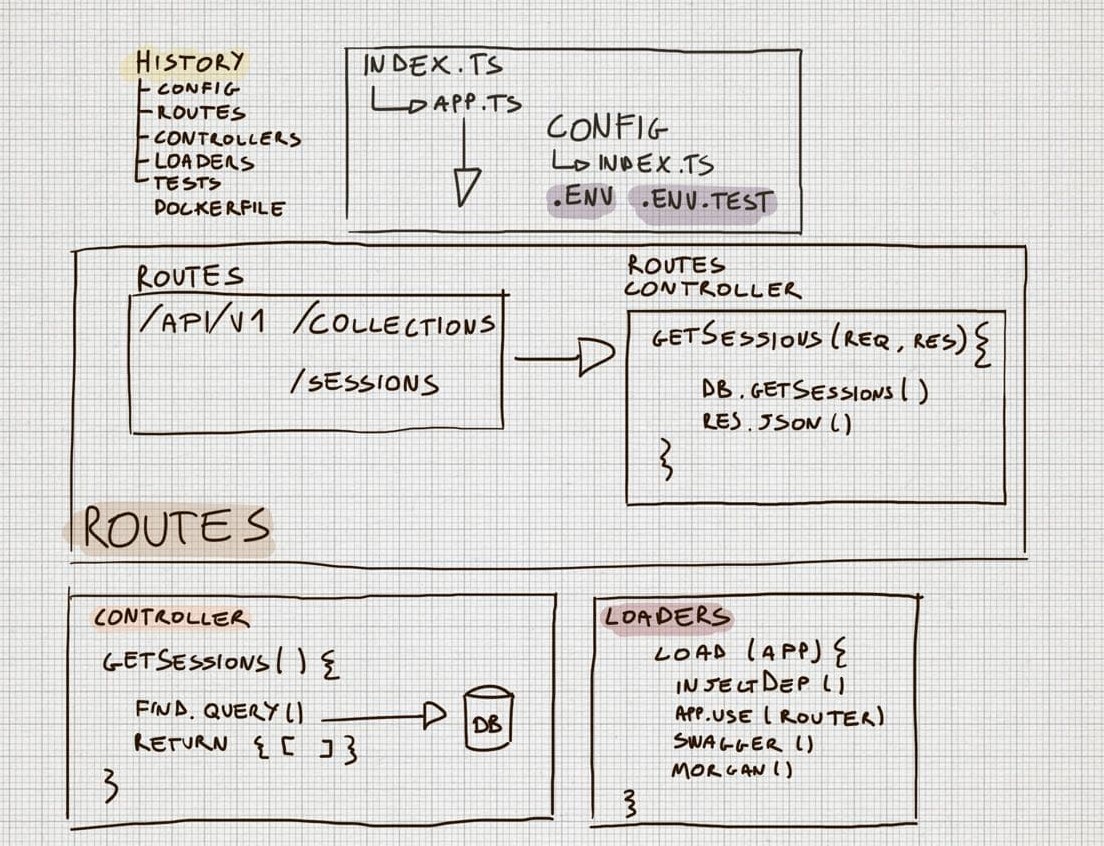 HISTORY
CONFIG
ROUTES
CONTROLLERS
LOADERS
TESTS
DOCKERFILE
INDEX.TS
APP.TS
CONFIG
INDEX.TS
.ENV .ENV.TEST
ROUTES
/API/V1 /COLLECTIONS
/SESSIONS
ROUTES
CONTROLLER
GETSESSIONS(REQ, RES){
DB.GETSESSIONS()
RES.JSON()
}
ROUTES
CONTROLLER
GETSESSIONS() {
FIND.QUERY()
DB
RETURN {[ ]}
}
LOADERS
LOAD (APP){
INJECTDEP()
APP.USE(ROUTER)
SWAGGER()
MORGAN()
}